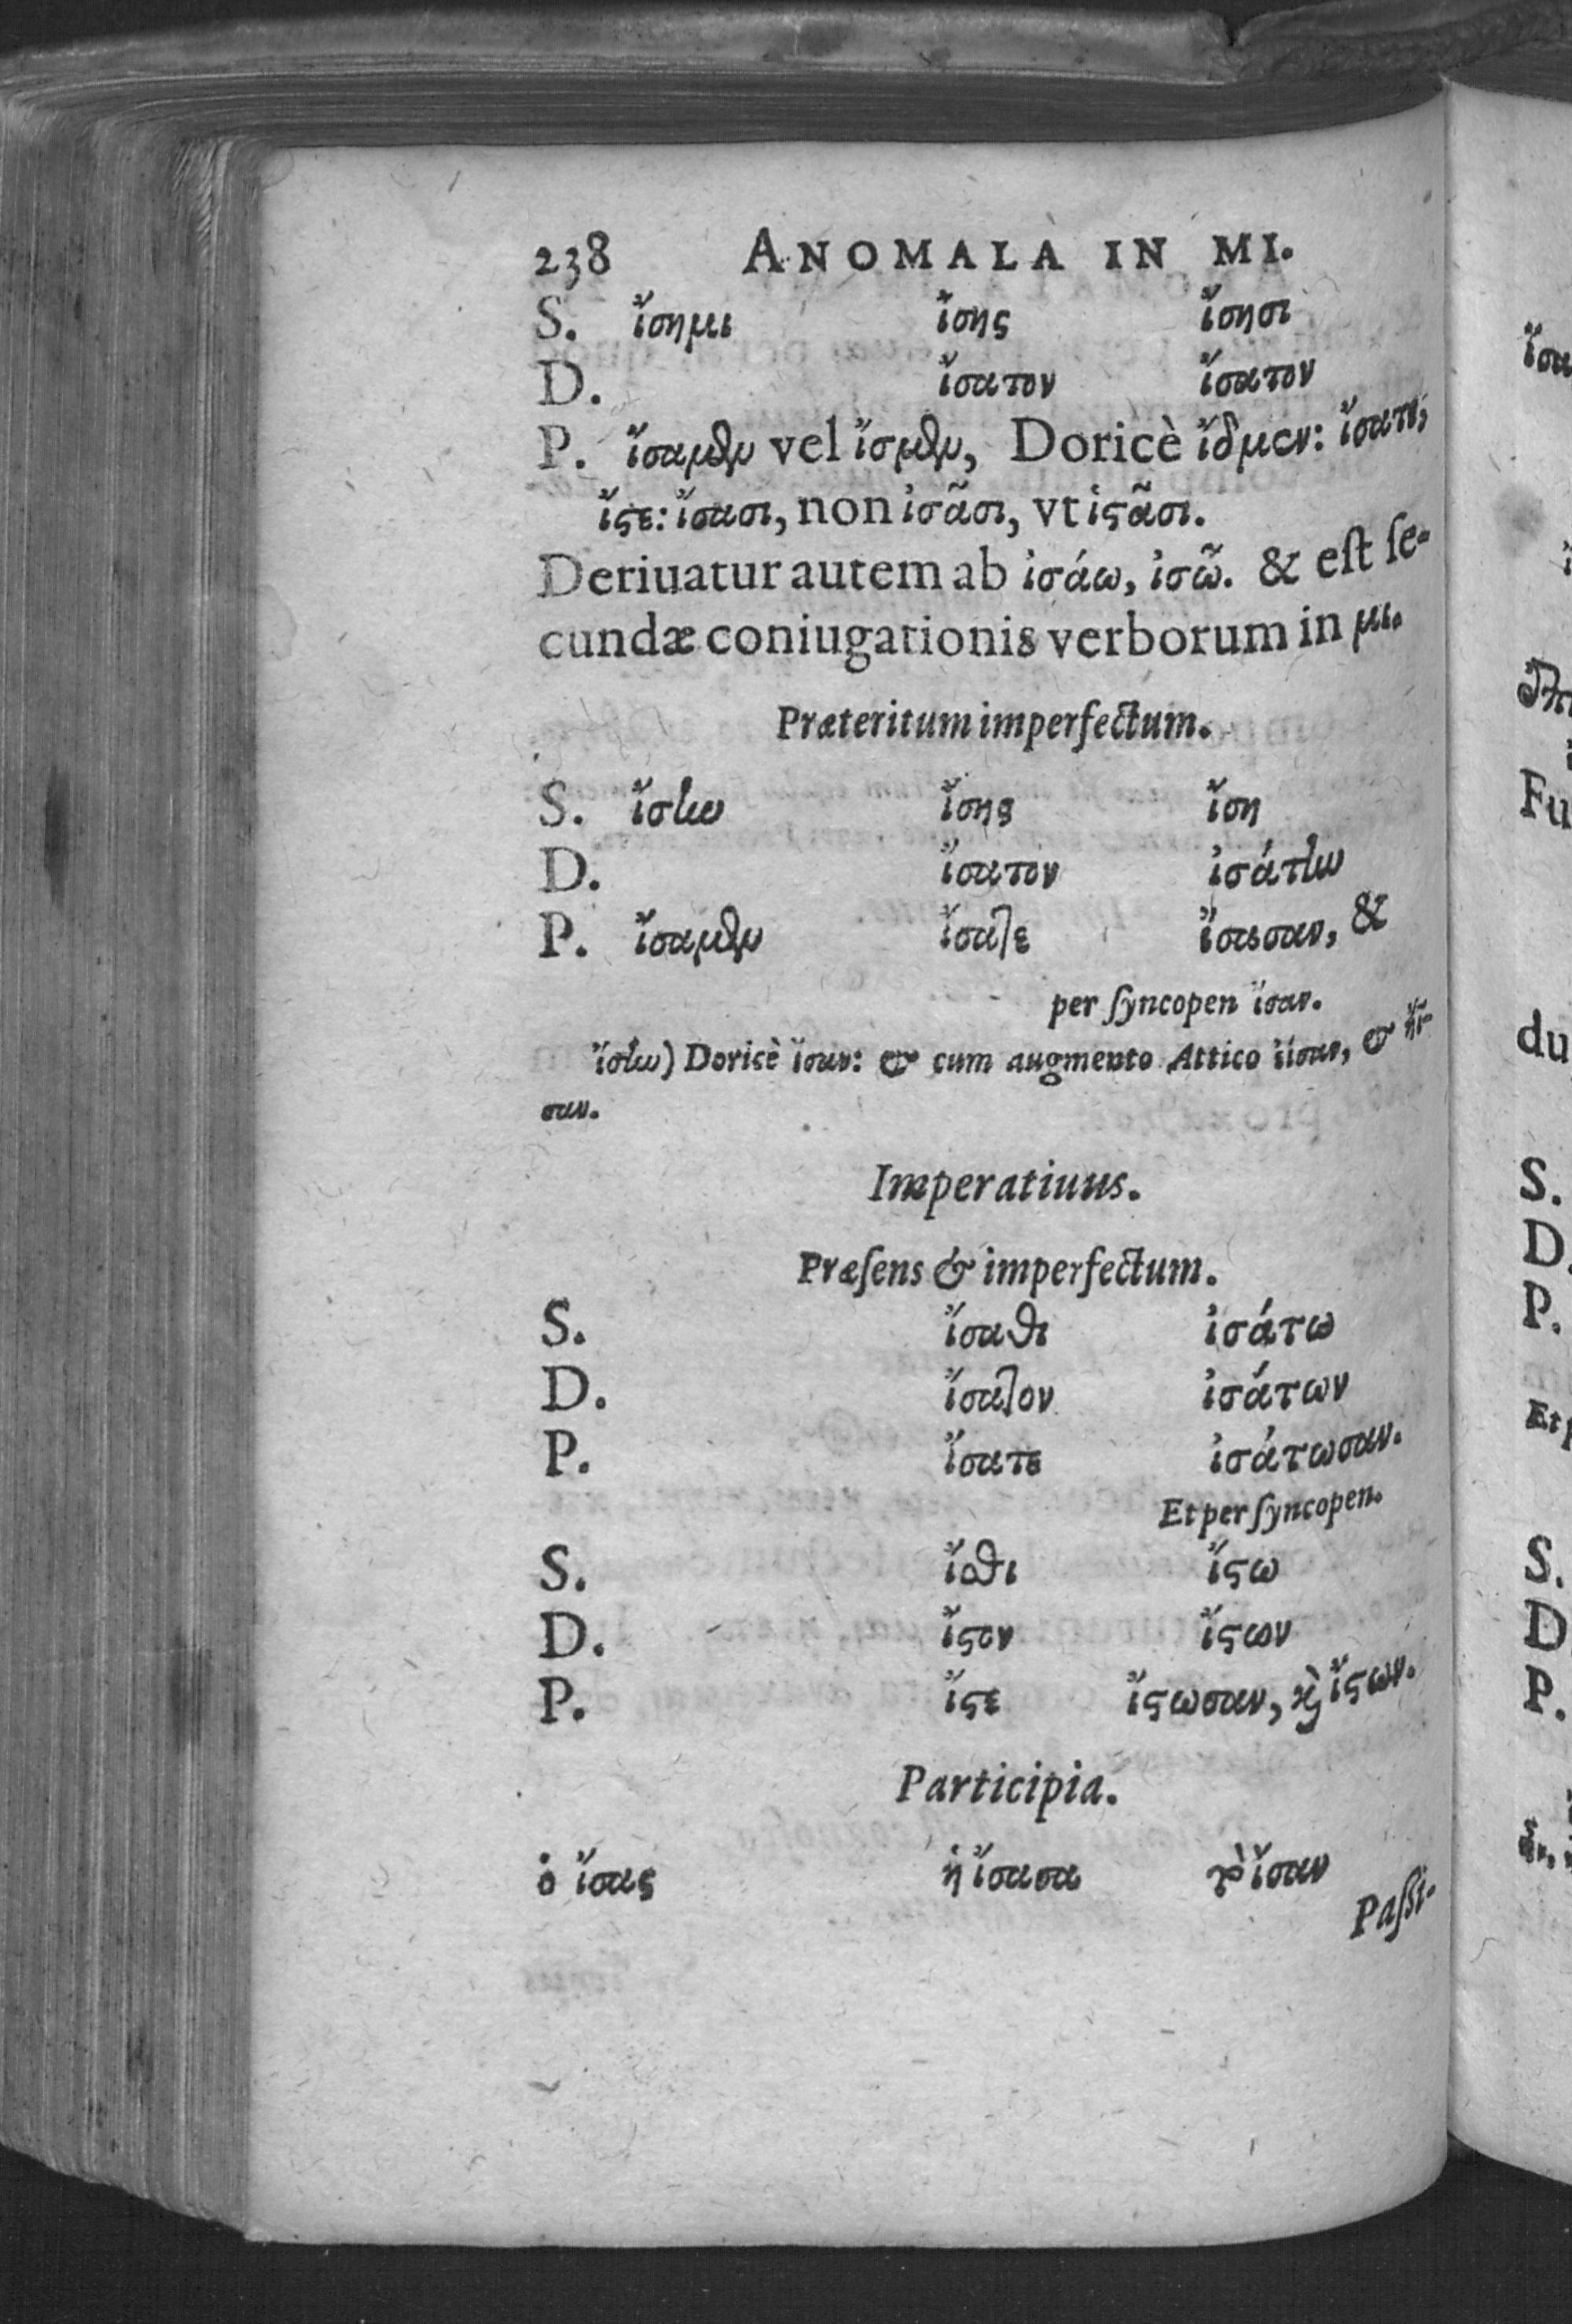 238 ANOMALA IN MI.
S. ἴσημι ἴσης ἴσησι
D. ἴσατον ἴσατον
P. ἴσαμεν vel ἴσμεν, Doricè ἴδμεν: ἴσατε,
ἴϛε: ἴσασι, non ἰσᾶσι, vt ἱϛᾶσι.
Deriuatur autem ab ἰσάω, ἰσῶ. & est se-
cundæ coniugationis verborum in μι.
Præteritum imperfectum.
S. ἴσην ἴσης ἴση
D. ἴσατον ἰσάτην
P. ἴσαμεν ἴσατε ἴσασαν, &
per syncopen ἴσαν.
ἴσην) Doricè ἴσαν: & cum augmento Attico ἤισαν, & ᾔ-
σαν.
Imperatiuus.
Præsens & imperfectum.
S. ἴσαθι ἰσάτω
D. ἴσατον ἰσάτων
P. ἴσατε ἰσάτωσαν.
Et per syncopen.
S. ἴσθι ἴϛω
D. ἴϛον ἴϛων
P. ἴϛε ἴϛωσαν, ϗ̀ ἴϛων.
Participia.
ὁ ἴσας ἡ ἴσασα τὸ ἴσαν
Passi-
S.
D.
P.
S.
D
P.